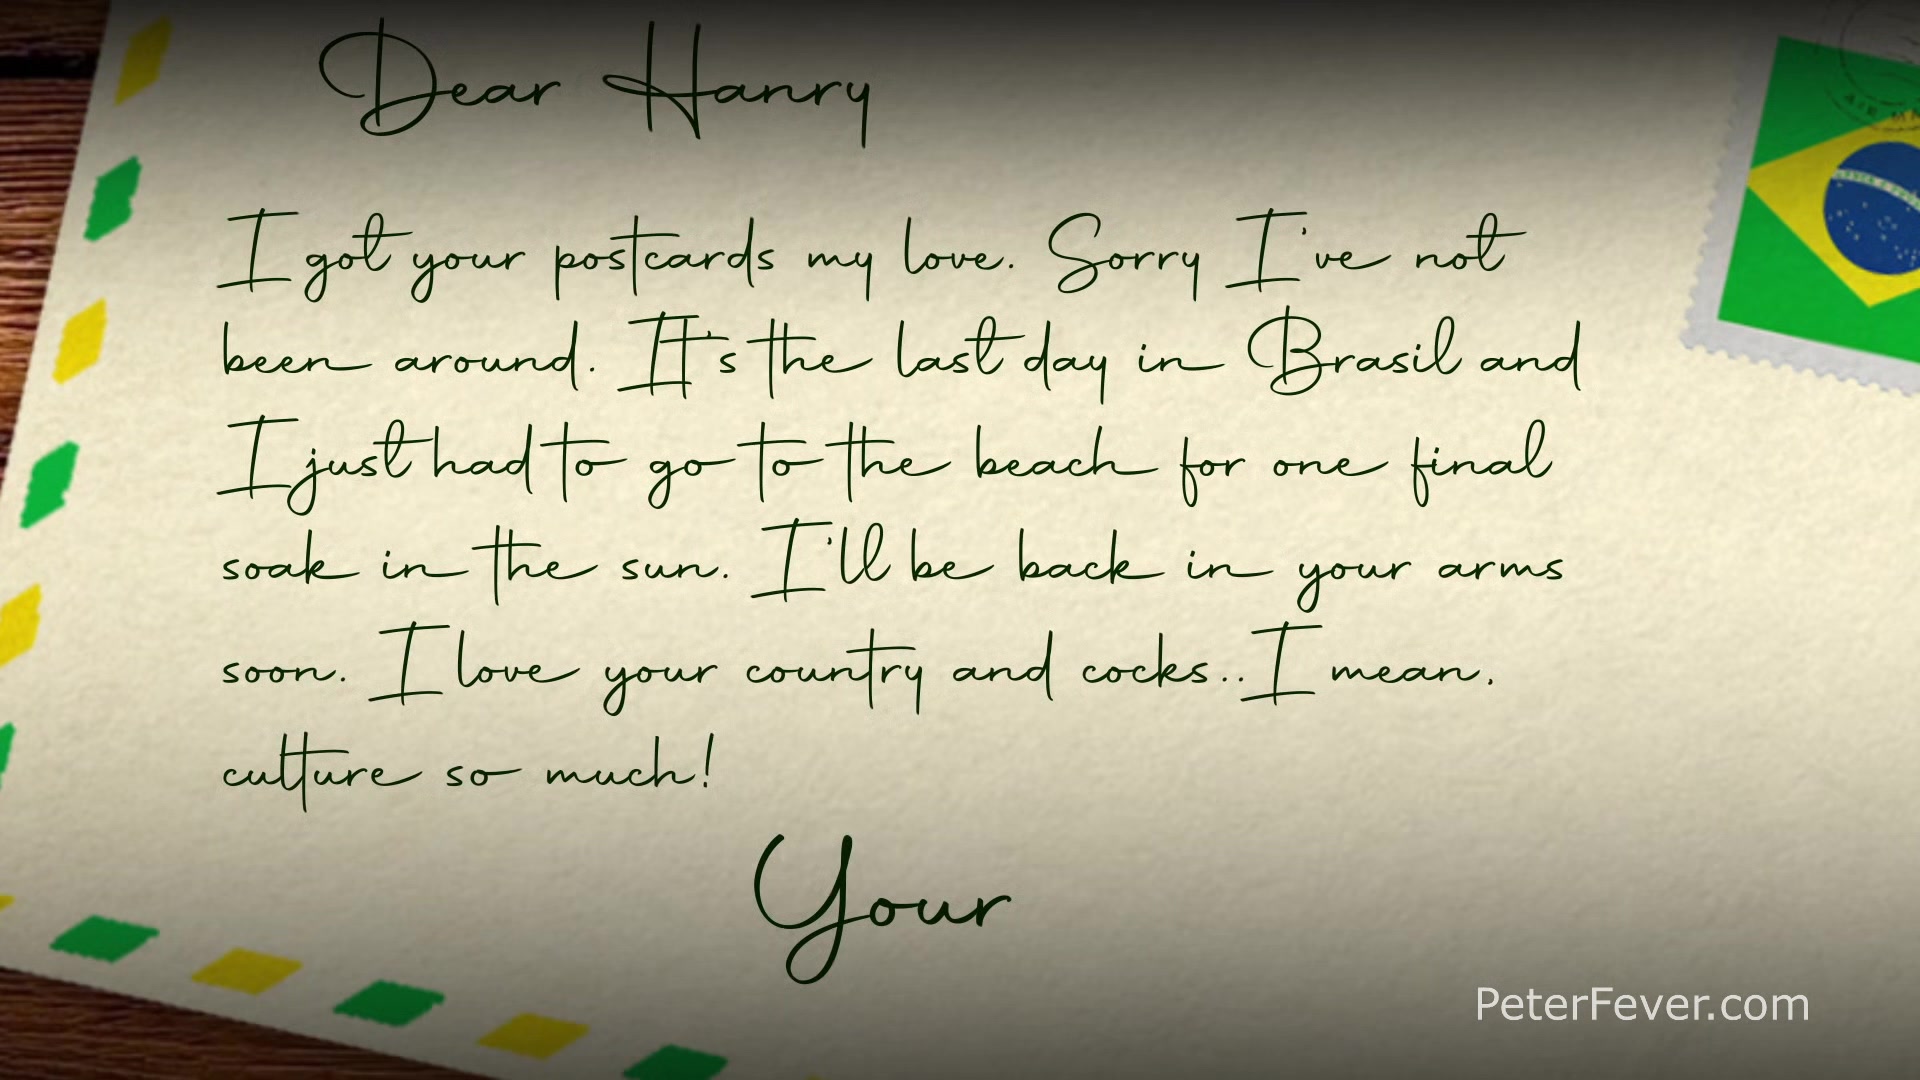 Dear Hanry
I got your postcards my love. Sorry I've not
been around. It's the last day in Brasil and
I just had to go to the beach for one final
soak in the sun. I'll be back in your arms
soon. I love your country and cocks..I mean.
culture so much!
Your
PeterFever.com